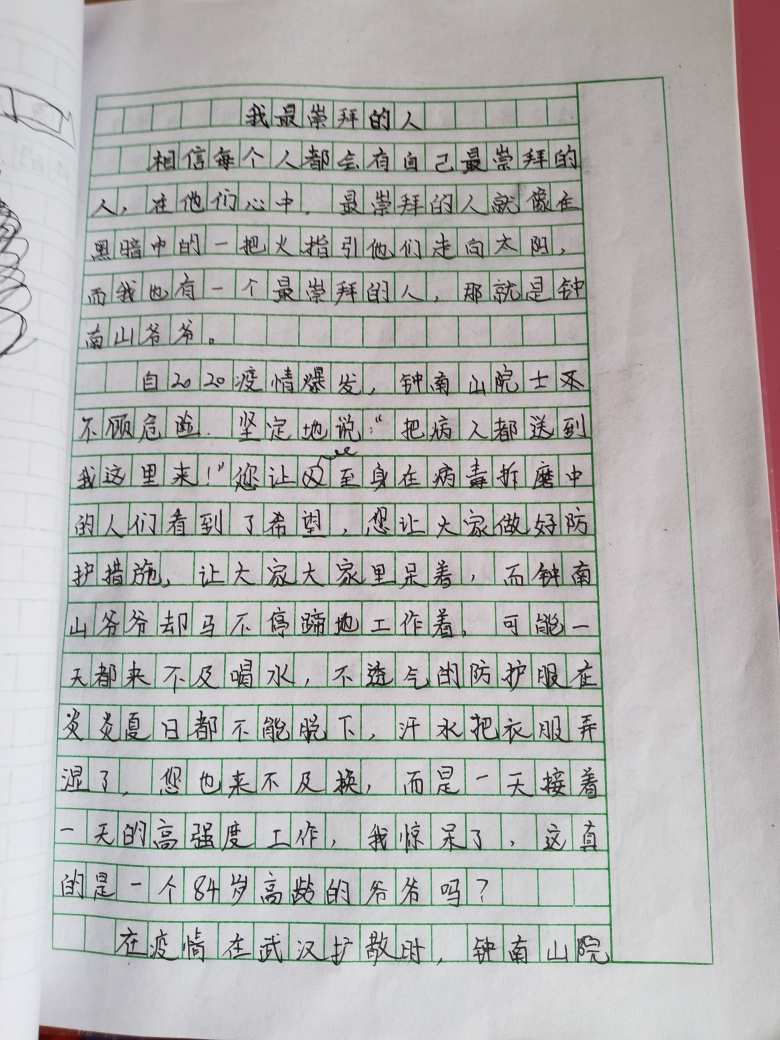 我最崇拜的人
相信每个人都会有自己最崇拜的
人，在他们心中，最崇拜的人就像在
黑暗中的一把火指引他们走向太阳，
而我也有一个最崇拜的人，那就是钟
南山爷爷。
自2020疫情爆发，钟南山院士
不顾危险，坚定地说："把病人都送到
我这里来！"您让至身在病毒折磨中
的人们看到了希望，您让大家做好防
护措施，让大家大家里呆着，而钟南
山爷爷却马不停蹄地工作着，可能一
天都来不及喝水，不透气的防护服在
炎炎夏日都不能脱下，汗水把衣服弄
湿了，您也来不及换，而是一天接着
一天的高强度工作，我惊呆了，这真
的是一个84岁高龄的爷爷吗？
在疫情在武汉扩散时，钟南山院